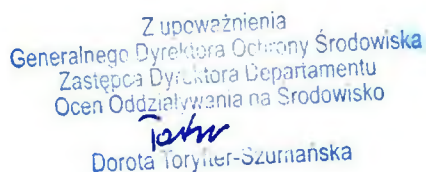 Z upoważnienia
Generalnego Dyrektora Ochrony Środowiska
Zastępca Dyrektora Departamentu
Ocen Oddziaływania na Środowisko
Dorota Toryfter-Szumańska